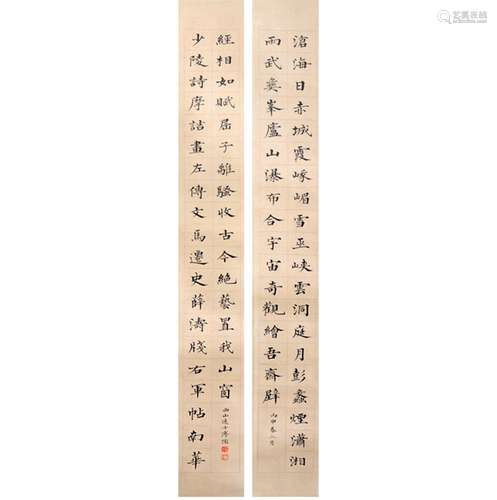 滄海日赤城霞峨嵋雪巫峽雲洞庭月彭蠡煙瀟湘
雨武夷峯廬山瀑布合宇宙奇觀繪吾齋壁
丙申春三月
少陵詩摩詰畫左傳文馬遷史薛濤牋右軍帖南華
經相如賦屈子離騷收古今絕藝置我山窗
西山逸士溥儒
艺典在线